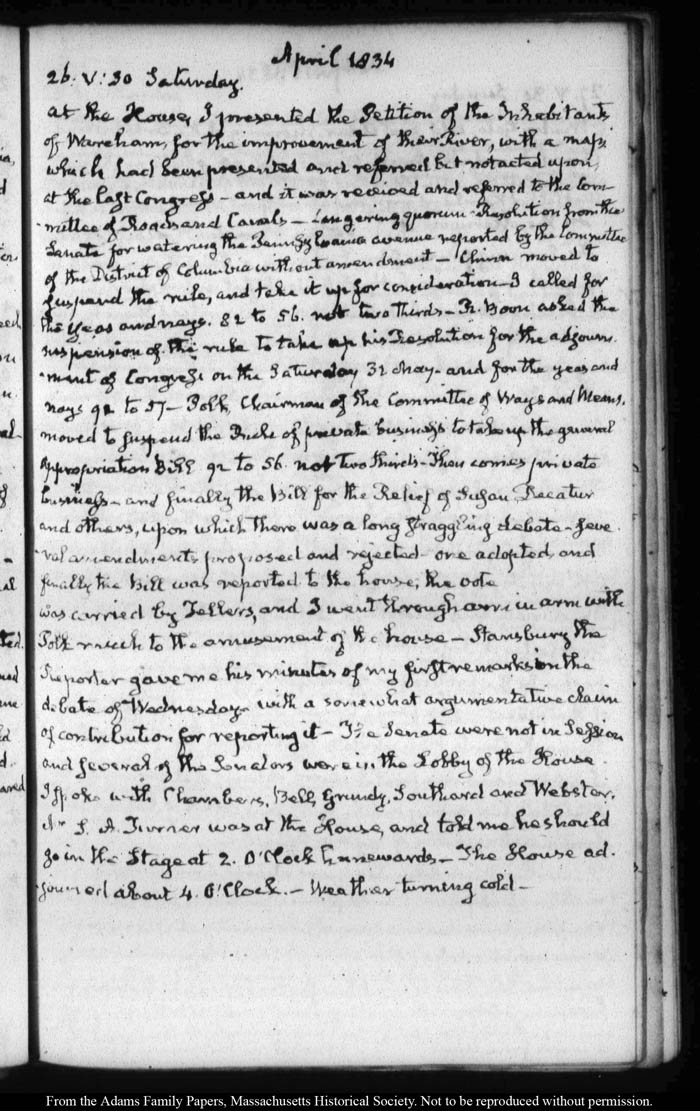 April 1834
26. V:30 Saturday.
At the House, I presented the Petition of the Inhabitants
of Wareham, for the improvement of their River, with a map,
which had been presented and referred but not acted upon,
at the last Congress - and it was received and referred to the Com-
mittee of Roads and Canals - Lingering quorum - Resolution from the
Senate for watering the Pennsylvania avenue reported by the Committee
of the District of Columbia without amendment - Chinn moved to
suspend the rule, and take it up for consideration - I called for
the yeas and nays. 82 to 56. not two thirds - R. Boon asked the
suspension of the rule to take up his Resolution for the adjourn-
ment of Congress on the Saturday 31 May - and for the yeas and
nays 92 to 57 - Polk, Chairman of the Committee of Ways and Means,
moved to suspend the Rule of private business to take up the general
appropriation Bill 92 to 56. not two thirds - Then comes private
business - and finally the Bill for the Relief of Susan Decatur
and others, upon which there was a long straggling debate - seve-
ral amendments proposed and rejected - one adopted, and
finally the Bill was reported to the house; the vote
was carried by Tellers, and I went through arm in arm with
Polk much to the amusement of the house - Stansbury the
Reporter gave me his minutes of my first remarks in the
debate of Wednesday - with a somewhat argumentative claim
of contribution for reporting it - The Senate were not in Session
and several of the Senators were in the Lobby of the House.
I spoke with Chambers, Bell, Grundy, Southard and Webster.
Mr S. A. Turner was at the House, and told me he should
go in the Stage at 2. O'Clock homewards - The House ad-
journed about 4. O'Clock. - Weather turning cold -
From the Adams Family Papers, Massachusetts Historical Society. Not to be reproduced without permission.